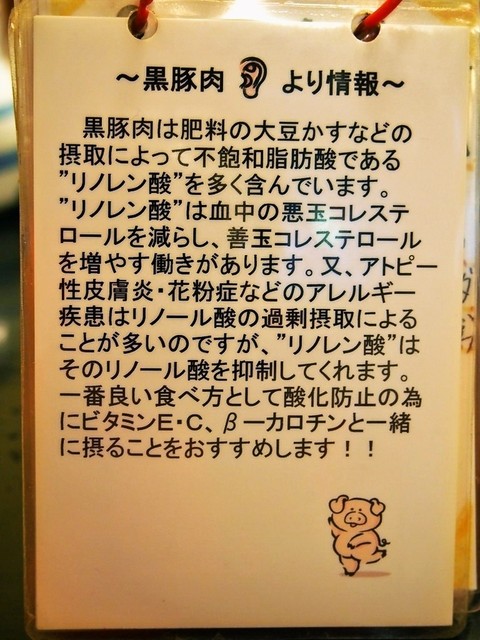 ～黒豚肉 より情報～
黒豚肉は肥料の大豆かすなどの
摂取によって不飽和脂肪酸である
”リノレン酸”を多く含んでいます。
”リノレン酸”は血中の悪玉コレステ
ロールを減らし、善玉コレステロール
を増やす働きがあります。又、アトピー
性皮膚炎・花粉症などのアレルギー
疾患はリノール酸の過剰摂取による
ことが多いのですが、”リノレン酸”は
そのリノール酸を抑制してくれます。
一番良い食べ方として酸化防止の為
にビタミンE・C、βーカロチンと一緒
に摂ることをおすすめします！！